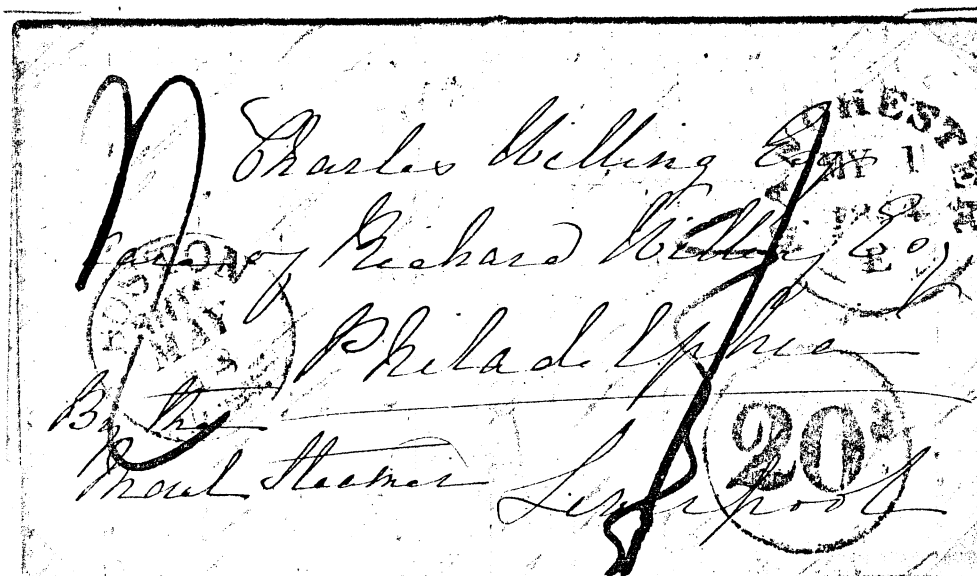 Charles Willing Esqr
Care of Richard Willing Esqr
Philadelphia
By the
Mail Steamer
Liverpool
MANCHESTER
MY 1
BOSTON
MAY
20